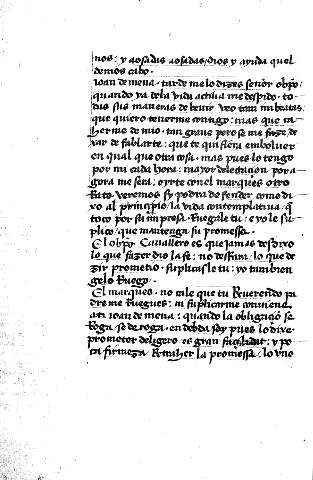 nos: y aosadas aosadas dios y ayuda quel
demos cabo.
Joan de mena. tarde me lo dizes señor obpo:
quando ya dela vida activa me despido. to-
das sus maneras de beuir veo tan
que quiero tenerme contigo: mas que
me de mio. tan grave pero se me faze de-
var de fablarte: que te quisiera embolver
en qual que otra cosa. mas pues lo tengo
por mi cada hora: mayor delectacion por a-
gora me sera: oyrte con el marques otro
Rato. veremos sy podra defender como di-
xo al principio la vida contemplativa, q
toco por su inpresa. Ruegale tu: e yo le su-
plico, que mantenga su promessa.
El obpo. Cavallero es que jamas desdixo
lo que fazer dio la fe: no desfara lo que de-
zir prometio. suplicas le tu: yo tambien
gelo Ruego.
El marques. no cale que tu Reverendo pa-
dre me Ruegues: ni suplicarme convenia
a ti Joan de mena: quando la obligacio se
Roga se deroga. en debda soy pues lo dixe
prometer deligero es gran facilidat: y po-
ca firmeza Retraher la promessa. lo vno